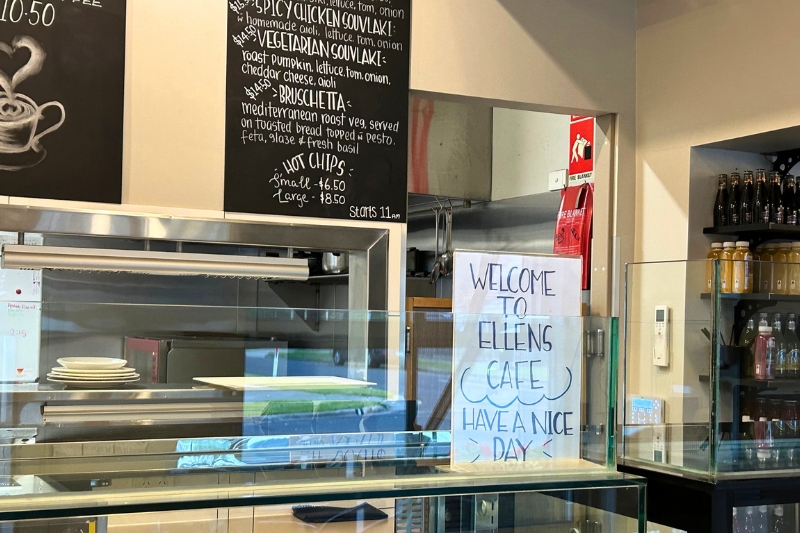 10.50
lettuce, tom, onion
SPICY CHICKEN SOUVLAKI:
homemade aioli, lettuce, tom, onion
$14.50 VEGETARIAN SOUVLAKI:
roast pumpkin, lettuce, tom, onion,
cheddar cheese, aioli
$14.50 BRUSCHETTA
mediterranean roast veg, served
on toasted bread topped w pesto,
feta, glase & fresh basil
HOT CHIPS
Small - $6.50
Large - $8.50
Starts 11AM
FIRE BLANKET
FIRE BLANKET
WELCOME
TO
ELLENS
CAFE
HAVE A NICE
DAY